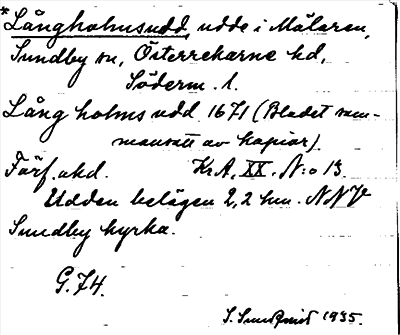 *Långholmsudd, udde i Mälaren,
Sundby sn, Österrekarne hd,
Söderm. l.
Lång holms udd 1671 (Bladet sam-
mansatt av kopior).
Förf. okd. KrA, XX. N:o 13.
Udden belägen 2,2 km. NNV
Sundby kyrka.
G. 74.
S. Sundqvist 1935.